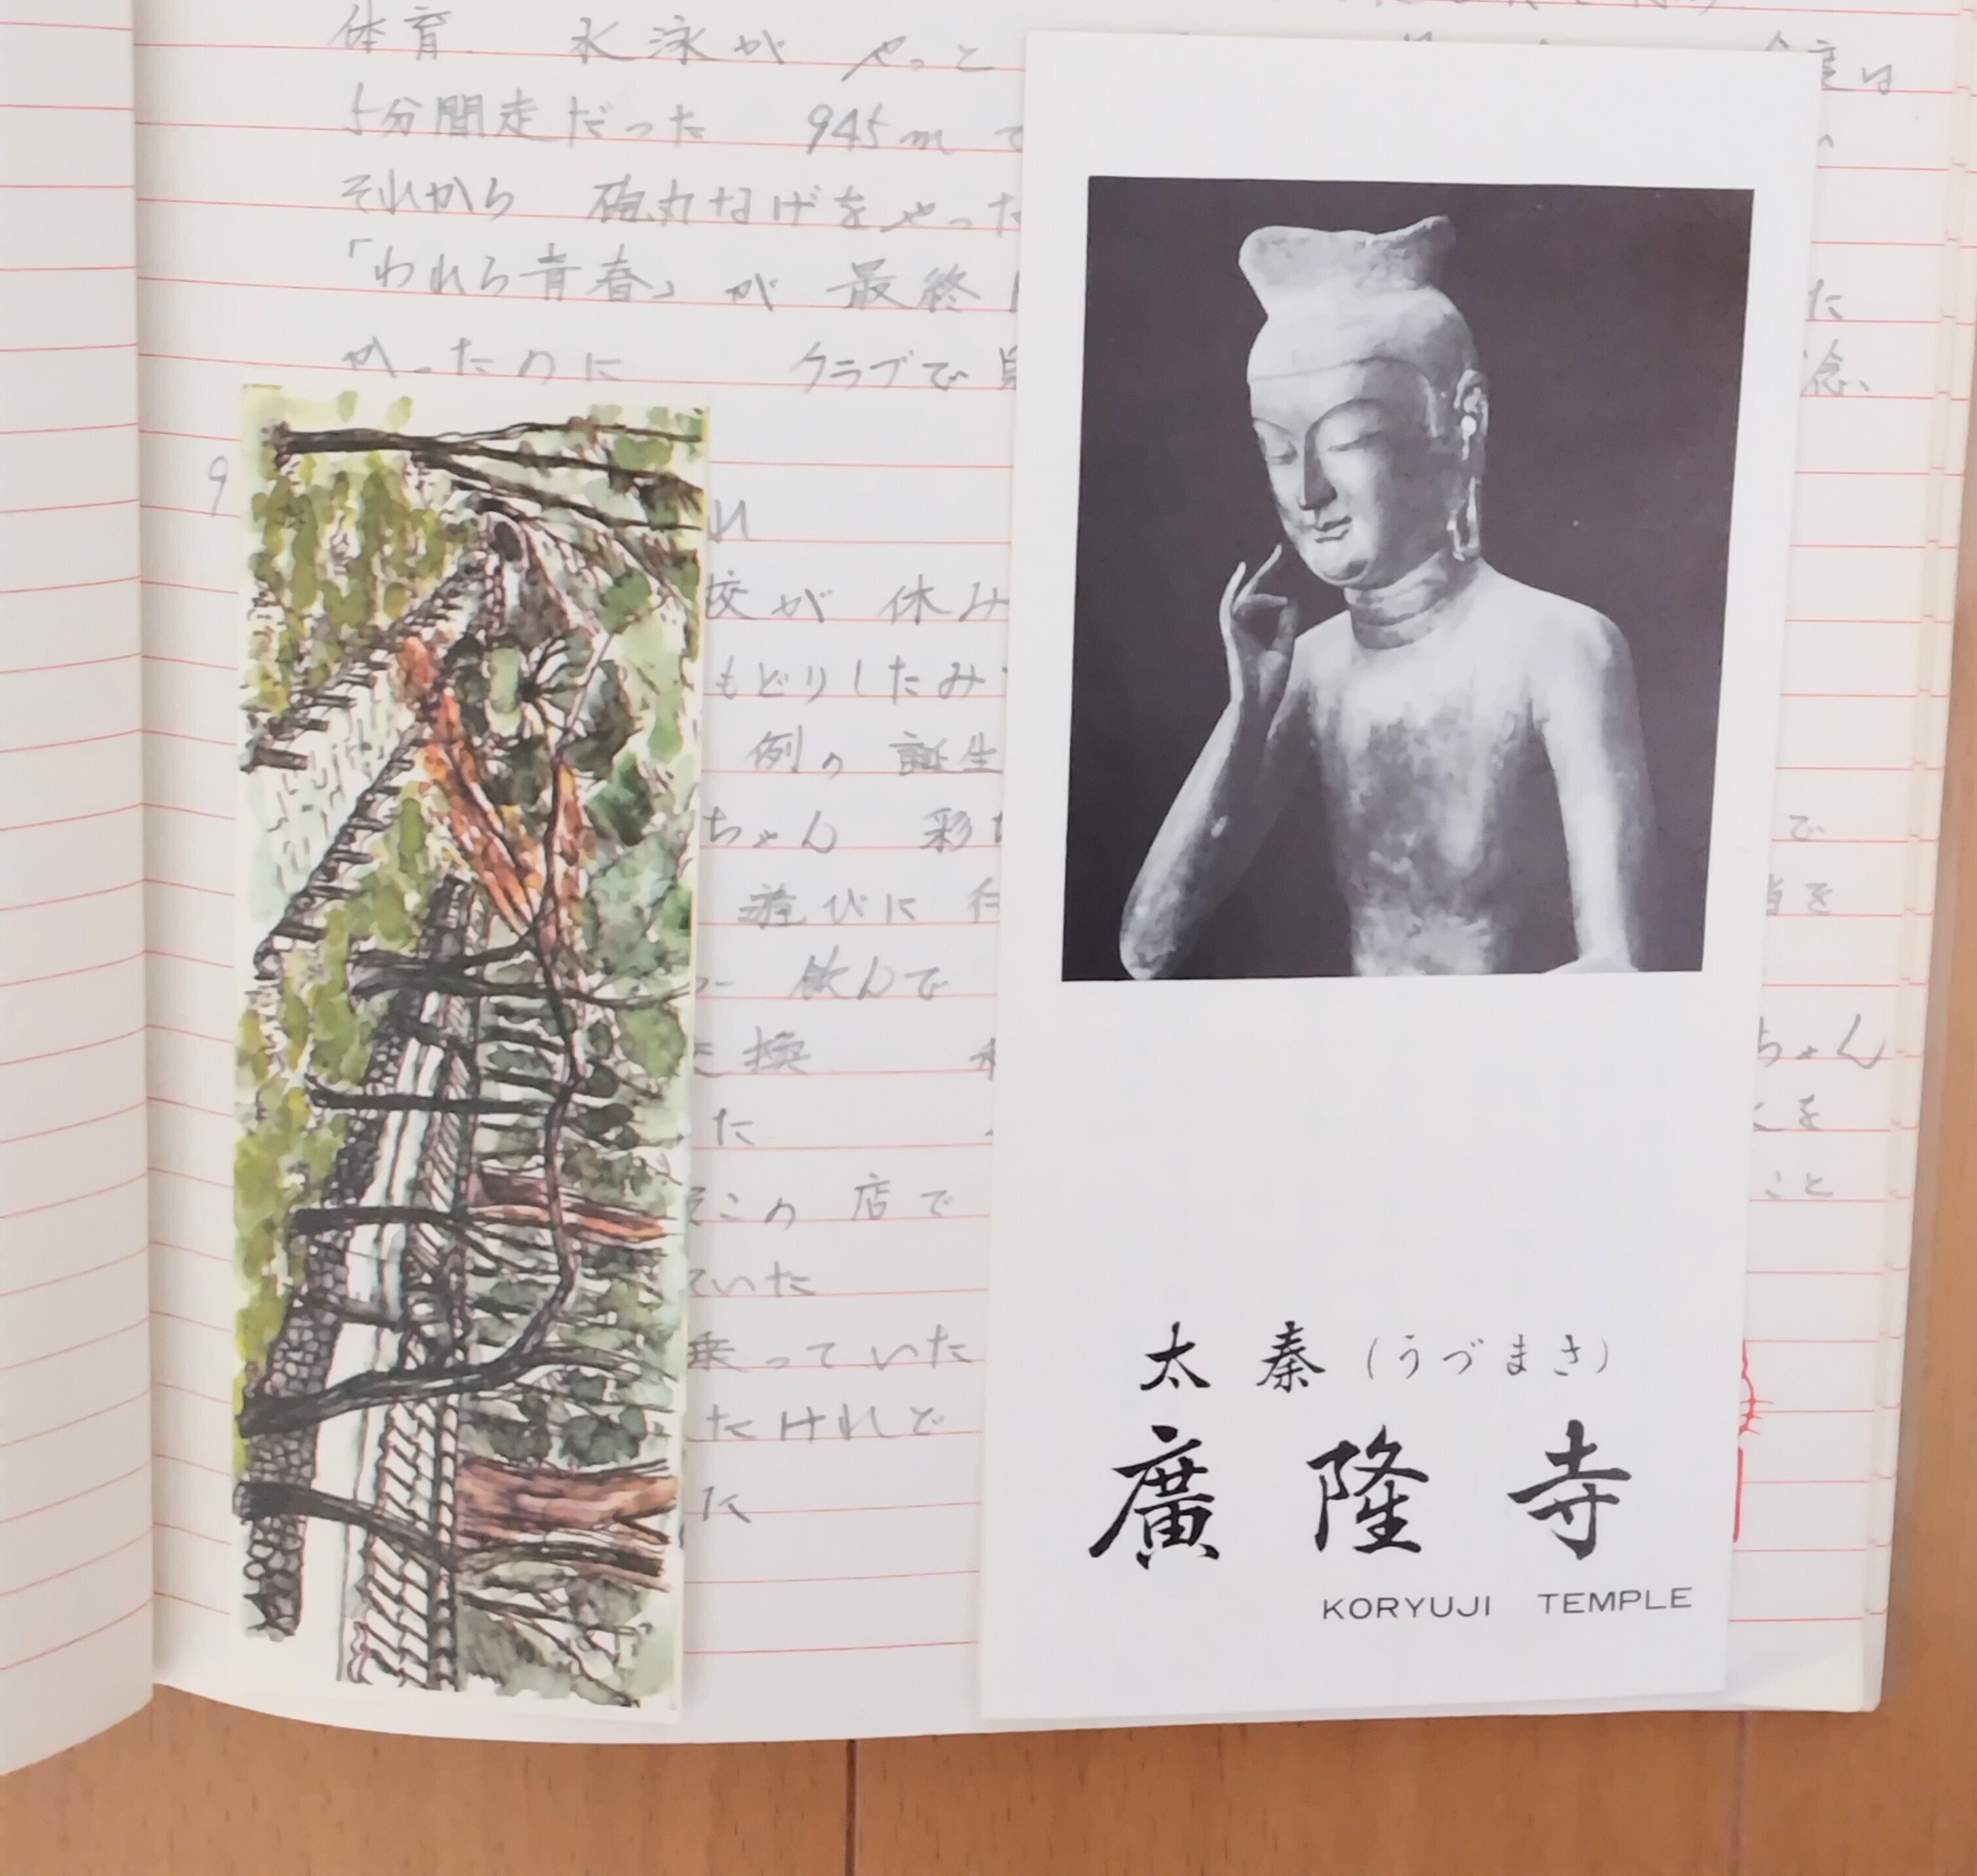 体育 水泳が やっと
度は
5分間走だった 945m で
それから 砲丸なげをやった
「われら青春」が 最終
た
かったのに クラブで
念、
9
れ
校が 休み
もどりしたみ
例の 誕生
ちゃん 彩
で
遊びに 行
を
飲んで
交換
ちゃん
した
を
そこの 店で
こと
ていた
乗っていた
たけれど
た
太秦（うづまさ）
廣隆寺
KORYUJI TEMPLE